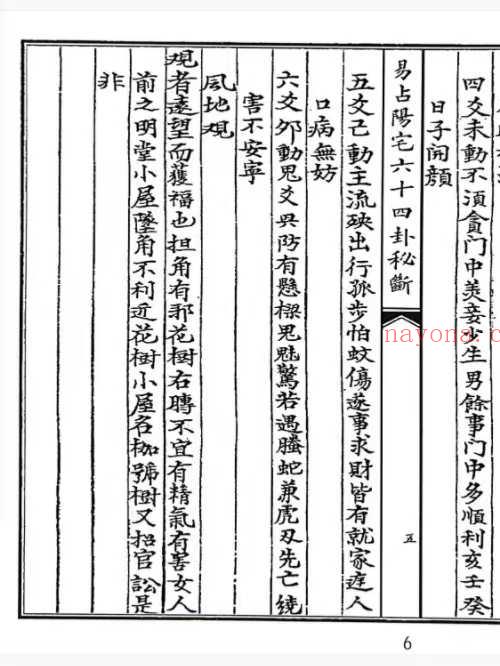 四爻未動不須貪门中美妾少生男餘事门中多順利亥壬癸
日子開顔
易占陽宅六十四卦秘斷
五
五爻己動主流殃出行孤步怕蚊傷遂事求財皆有就家庭人
口病無妨
六爻卯動鬼爻興防有懸樑鬼魅驚若遇螣蛇兼虎刄先亡繞
害不安寧
風地观
观者遠望而獲福也担角有邪花樹右轉不宜有精氣有害女人
前之明堂小屋墜角不利近花樹小屋名枷號樹又招官訟是
非
nayona.c
6